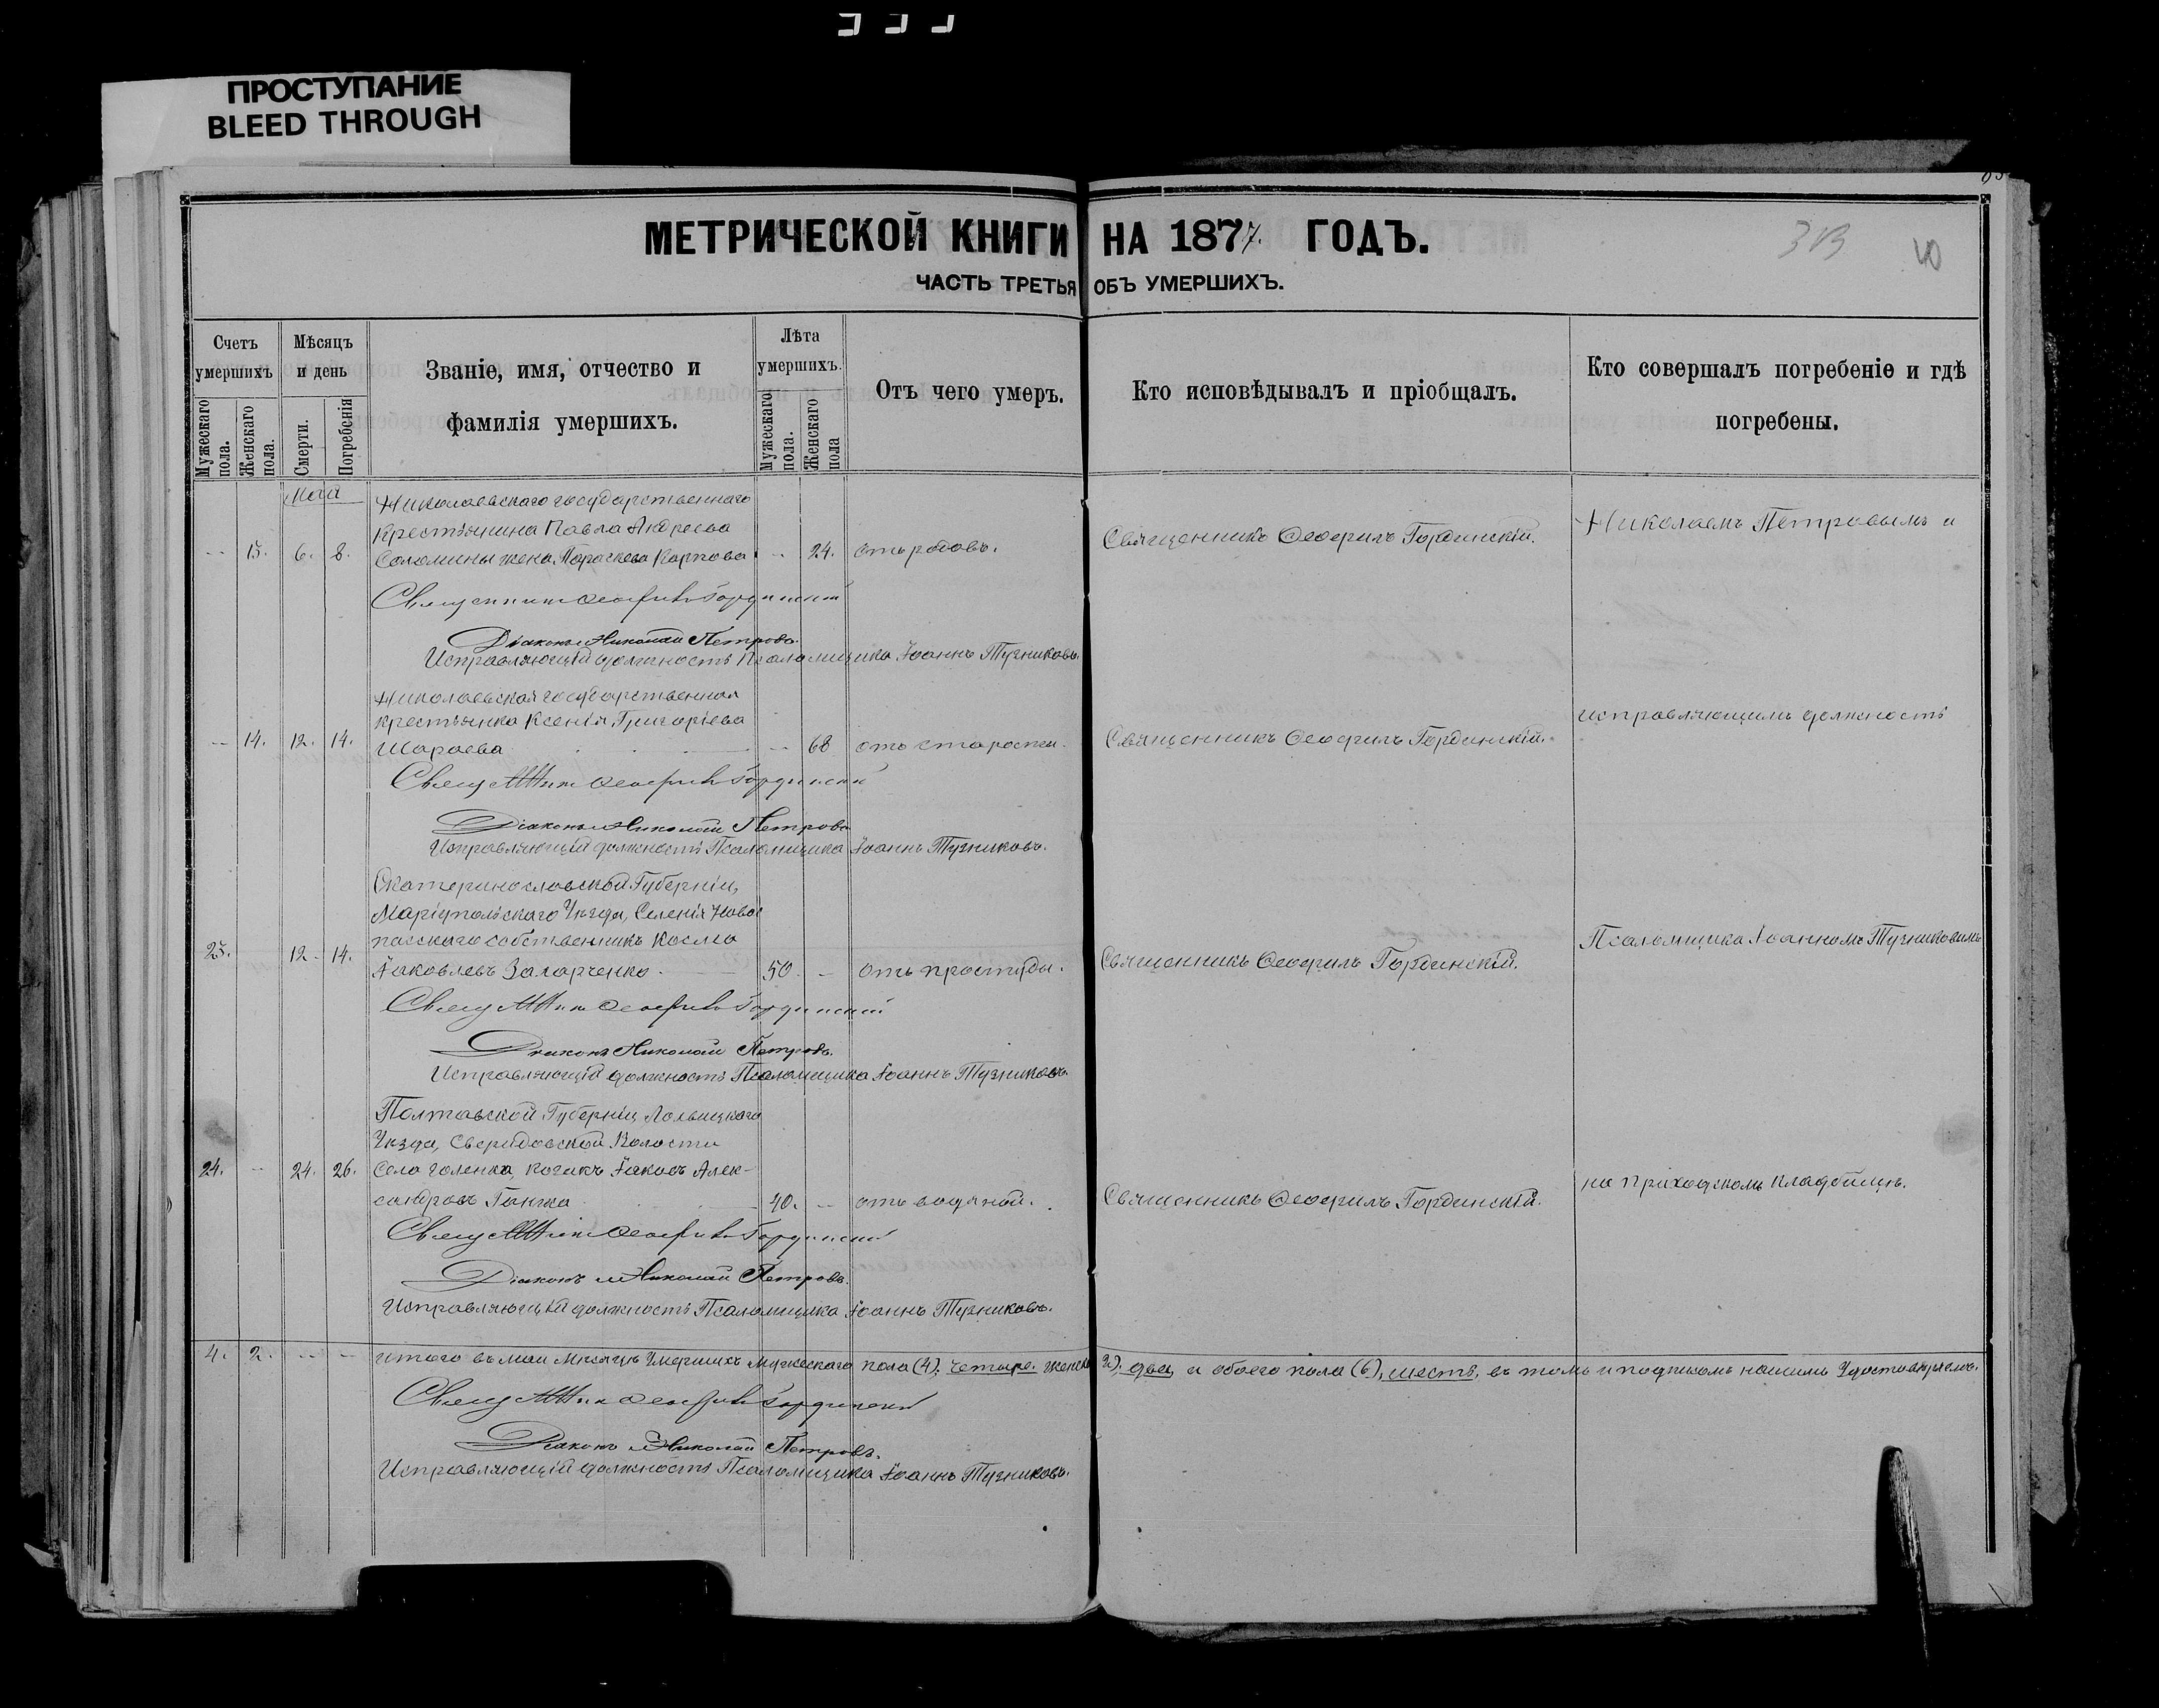 ПРОСТУПАНИЕ
BLEED THROUGH
МЕТРИЧЕСКОЙ КНИГИ НА 1877. ГОДЪ.
ЧАСТЬ ТРЕТЬЯ ОБЪ УМЕРШИХЪ.
40
Счетъ умершихъ
Мужескаго пола.
Женскаго пола.
Мѣсяцъ и день
Смерти.
Погребенія
Званіе, имя, отчество и
фамилія умершихъ.
Лѣта умершихъ.
Мужескаго пола.
Женскаго пола
Отъ чего умеръ.
Кто исповѣдывалъ и пріобщалъ.
Кто совершалъ погребеніе и гдѣ
погребены.
Мая
Николаевскаго государственнаго
крестьянина Павла Андреева
-- 6. 8. Соломины жена Параскева Карпова -- 24. отъ родовъ. Священникъ Ѳеофилъ Гординскій. Николаемъ Петровымъ и
Священникъ Ѳеофилъ Гординскій
Діаконъ Николай Петровъ.
Исправляющій должность Псаломщика Іоаннъ Тузниковъ.
Николаевская государственная
крестьянка Ксенія Григоріева
-- 14. 12. 14. Шараева -- 68 отъ старости. Священникъ Ѳеофилъ Гординскій. исправляющимъ должность
Священникъ Ѳеофилъ Гординскій
Діаконъ Николай Петровъ
Исправляющій должность Псаломщика Іоаннъ Тузниковъ.
Екатеринославской Губерніи,
Маріупольскаго Уѣзда, Селенія Новос
пасскаго собственникъ Косма
23. 12. 14. Іаковлевъ Захарченко. 50. -- отъ простуды. Священникъ Ѳеофилъ Гординскій. Псаломщика Іоанномъ Тузниковымъ
Священникъ Ѳеофилъ Гординскій
Діаконъ Николай Петровъ.
Исправляющій должность Псаломщика Іоаннъ Тузниковъ.
Полтавской Губерніи Лохвицкаго
Уѣзда, Свередовской Волости
24. -- 24. 26. Села Голенка, козакъ Іаковъ Алек-
сандровъ Ганжа 40. -- отъ водяной. Священникъ Ѳеофилъ Гординскій. на приходскомъ кладбищѣ.
Священникъ Ѳеофилъ Гординскій
Діаконъ Николай Петровъ.
Исправляющій должность Псаломщика Іоаннъ Тузниковъ.
4. 2. -- -- итого въ маи мѣсяцѣ умершихъ мужескаго пола (4), четыре. женск 2), два, а обоего пола (6), шесть, въ томъ и подписомъ нашимъ удостовѣряемъ.
Священникъ Ѳеофилъ Гординскій
Діаконъ Николай Петровъ.
Исправляющій должность Псаломщика Іоаннъ Тузниковъ.